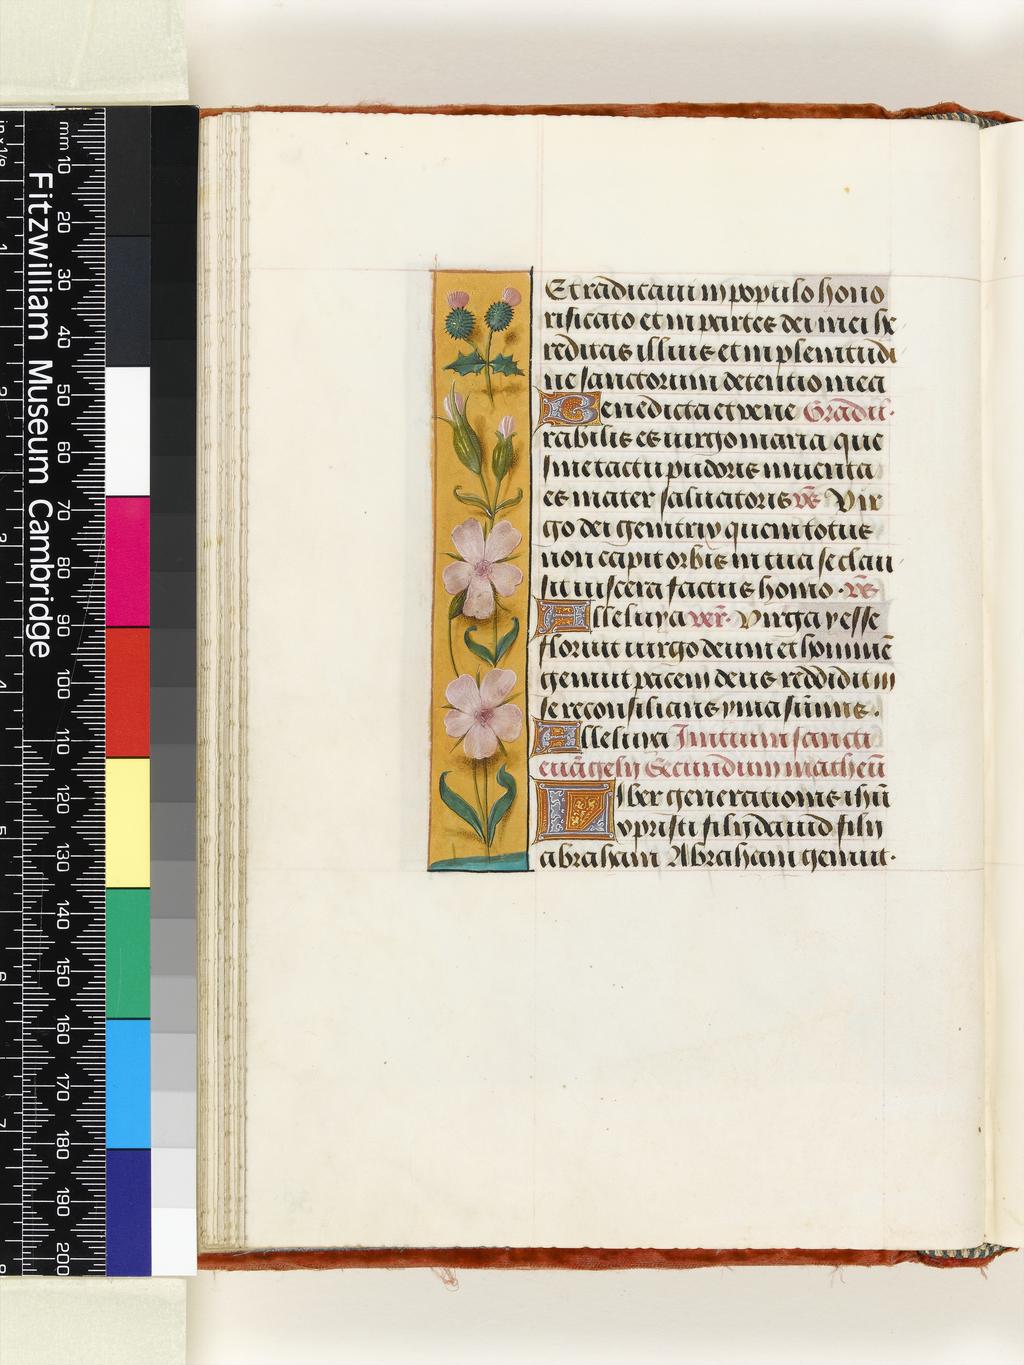 Et radicaui in populo hono
rificato et in partes dei mei he
reditas illius et in plenitudi
ne sanctorum detentio mea
Benedicta et vene Gradu͞.
rabilis es uirgo maria que
sine tactu pudoris inuenta
es mater saluatoris v͞s Vir
go dei genitrix quem totus
non capit orbis in tua se clau
sit uiscera factus homo · v͞s
Alleluya ver͞. Virga yesse
floruit uirgo deum et hominē
genuit pacem deus reddidit in
se reconsilians yma sūmis .
Alleluya Initium sancti
euāgelij Secundum matheū
Liber generationis ihū
xpristi filij dauid filij
abraham Abraham genuit .
Fitzwilliam Museum Cambridge
mm 10 20 30 40 50 60 70 80 90 100 110 120 130 140 150 160 170 180 190 200
1 2 3 4 5 6 7 8